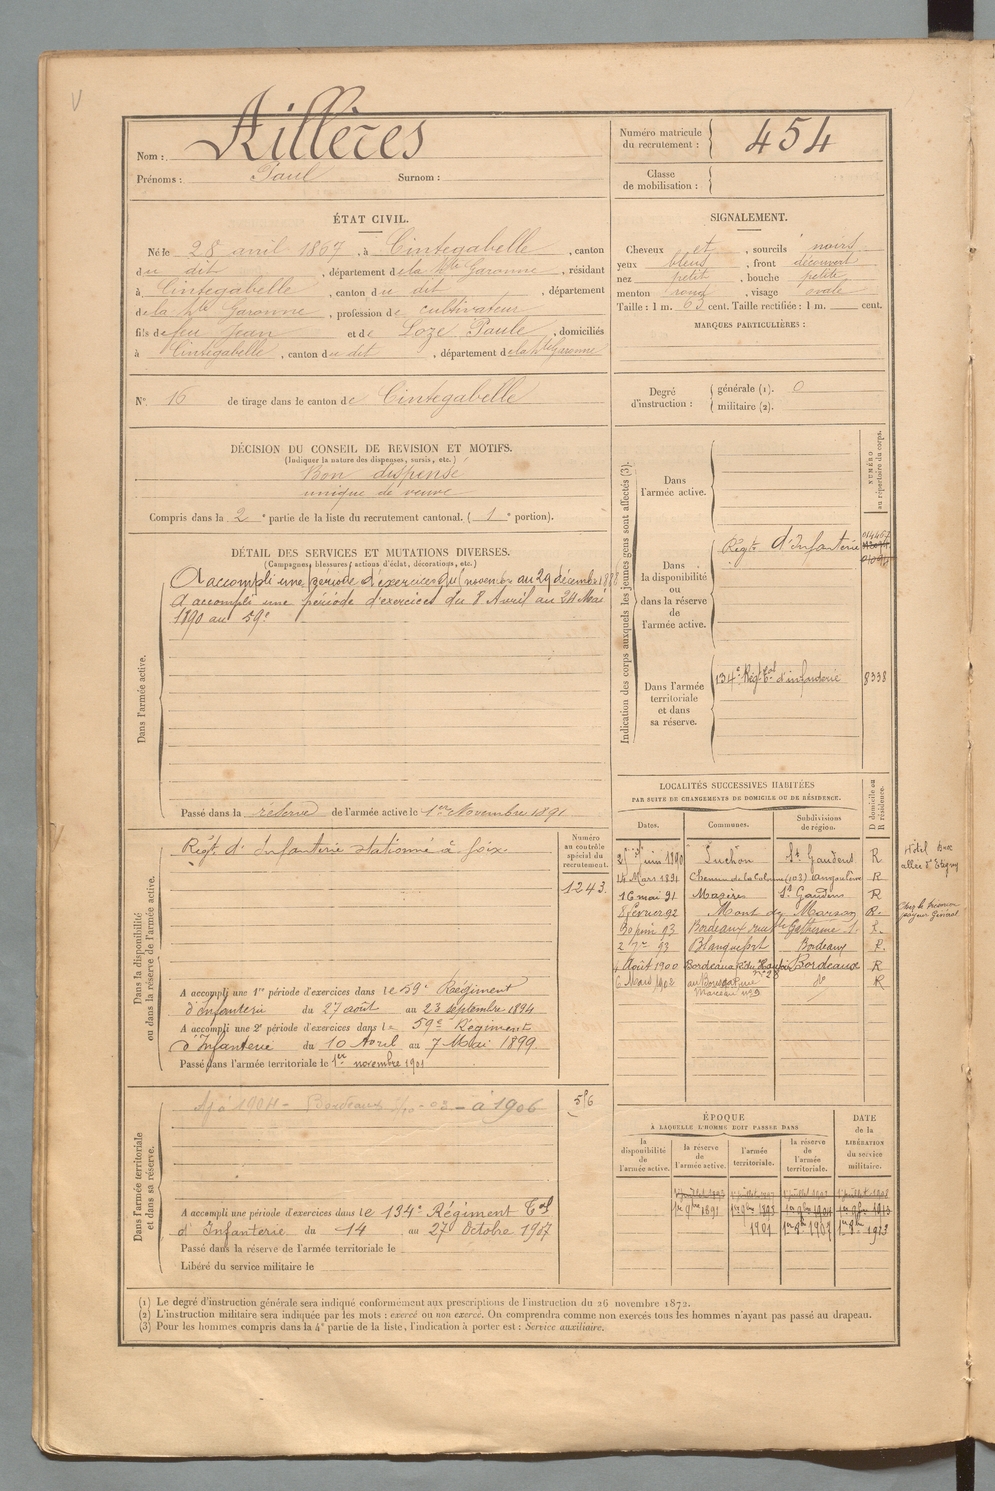 Nom : Aillères
Prénoms : Paul Surnom :
Numéro matricule du recrutement : 454
Classe de mobilisation :
ÉTAT CIVIL.
Né le 28 avril 1867, à Cintegabelle, canton
du dit, département de la Hte Garonne, résidant
à Cintegabelle, canton du dit, département
de la Hte Garonne, profession de cultivateur
fils de feu Jean et de Loze Paule, domiciliés
à Cintegabelle, canton du dit, département de la Hte Garonne
SIGNALEMENT.
Cheveux et, sourcils noirs
yeux bleus, front découvert
nez petit, bouche petite
menton rond, visage ovale
Taille : 1 m. 63 cent. Taille rectifiée : 1 m. cent.
MARQUES PARTICULIÈRES :
N° 16 de tirage dans le canton de Cintegabelle
Degré d'instruction : générale (1). 0
militaire (2).
DÉCISION DU CONSEIL DE REVISION ET MOTIFS.
(Indiquer la nature des dispenses, sursis, etc.)
Bon dispensé
unique de veuve
Compris dans la 2e partie de la liste du recrutement cantonal. (1e portion).
DÉTAIL DES SERVICES ET MUTATIONS DIVERSES.
(Campagnes, blessures, actions d'éclat, décorations, etc.)
Dans l'armée active.
A accompli une période d'exercices du novembre au 29 décembre 188
A accompli une période d'exercices du 8 Avril au 24 Mai
1890 au 59e
Passé dans la réserve de l'armée active le 1er Novembre 1891
Indication des corps auxquels les jeunes gens sont affectés (3).
NUMÉRO au répertoire du corps.
Dans l'armée active.
Dans la disponibilité ou dans la réserve de l'armée active.
Régt d'Infanterie
Dans l'armée territoriale et dans sa réserve.
134e Régt Tal d'infanterie 8338
Dans la disponibilité ou dans la réserve de l'armée active.
Numéro au contrôle spécial du recrutement.
Régt d'Infanterie stationné à Foix.
1243
A accompli une 1re période d'exercices dans le 59e Régiment
d'Infanterie du 27 août au 23 septembre 1894
A accompli une 2e période d'exercices dans le 59e Régiment
d'Infanterie du 10 Avril au 7 Mai 1899
Passé dans l'armée territoriale le 1er novembre 1901
LOCALITÉS SUCCESSIVES HABITÉES
PAR SUITE DE CHANGEMENTS DE DOMICILE OU DE RÉSIDENCE.
D domicile ou R résidence.
Dates. Communes. Subdivisions de région.
Juin 1890 Luchon St Gaudens R
Hôtel
allée d'Etigny
14 Mars 1891 Chemin de la (103) R
16 mai 91 Mazères St Gaudens R
8 février 92 Mont de Marsan R.
Chez le
payeur Général
30 juin 93 Bordeaux rue Ste Catherine R.
93 Blanquefort Bordeaux R.
Août 1900 Bordeaux Bordeaux R
6 Mars 1902 Rue Marceau no 3 do R
Dans l'armée territoriale et dans sa réserve.
Aj à 1904 - Bordeaux - 03 - à 1906
A accompli une période d'exercices dans le 134e Régiment Tal
d'Infanterie du 14 au 27 Octobre 1907
Passé dans la réserve de l'armée territoriale le
Libéré du service militaire le
ÉPOQUE
À LAQUELLE L'HOMME DOIT PASSER DANS
la disponibilité de l'armée active.
la réserve de l'armée active.
l'armée territoriale.
la réserve de l'armée territoriale.
DATE de la LIBÉRATION du service militaire.
1er 9bre 1891
1901
(1) Le degré d'instruction générale sera indiqué conformément aux prescriptions de l'instruction du 26 novembre 1872.
(2) L'instruction militaire sera indiquée par les mots : exercé ou non exercé. On comprendra comme non exercés tous les hommes n'ayant pas passé au drapeau.
(3) Pour les hommes compris dans la 4e partie de la liste, l'indication à porter est : Service auxiliaire.